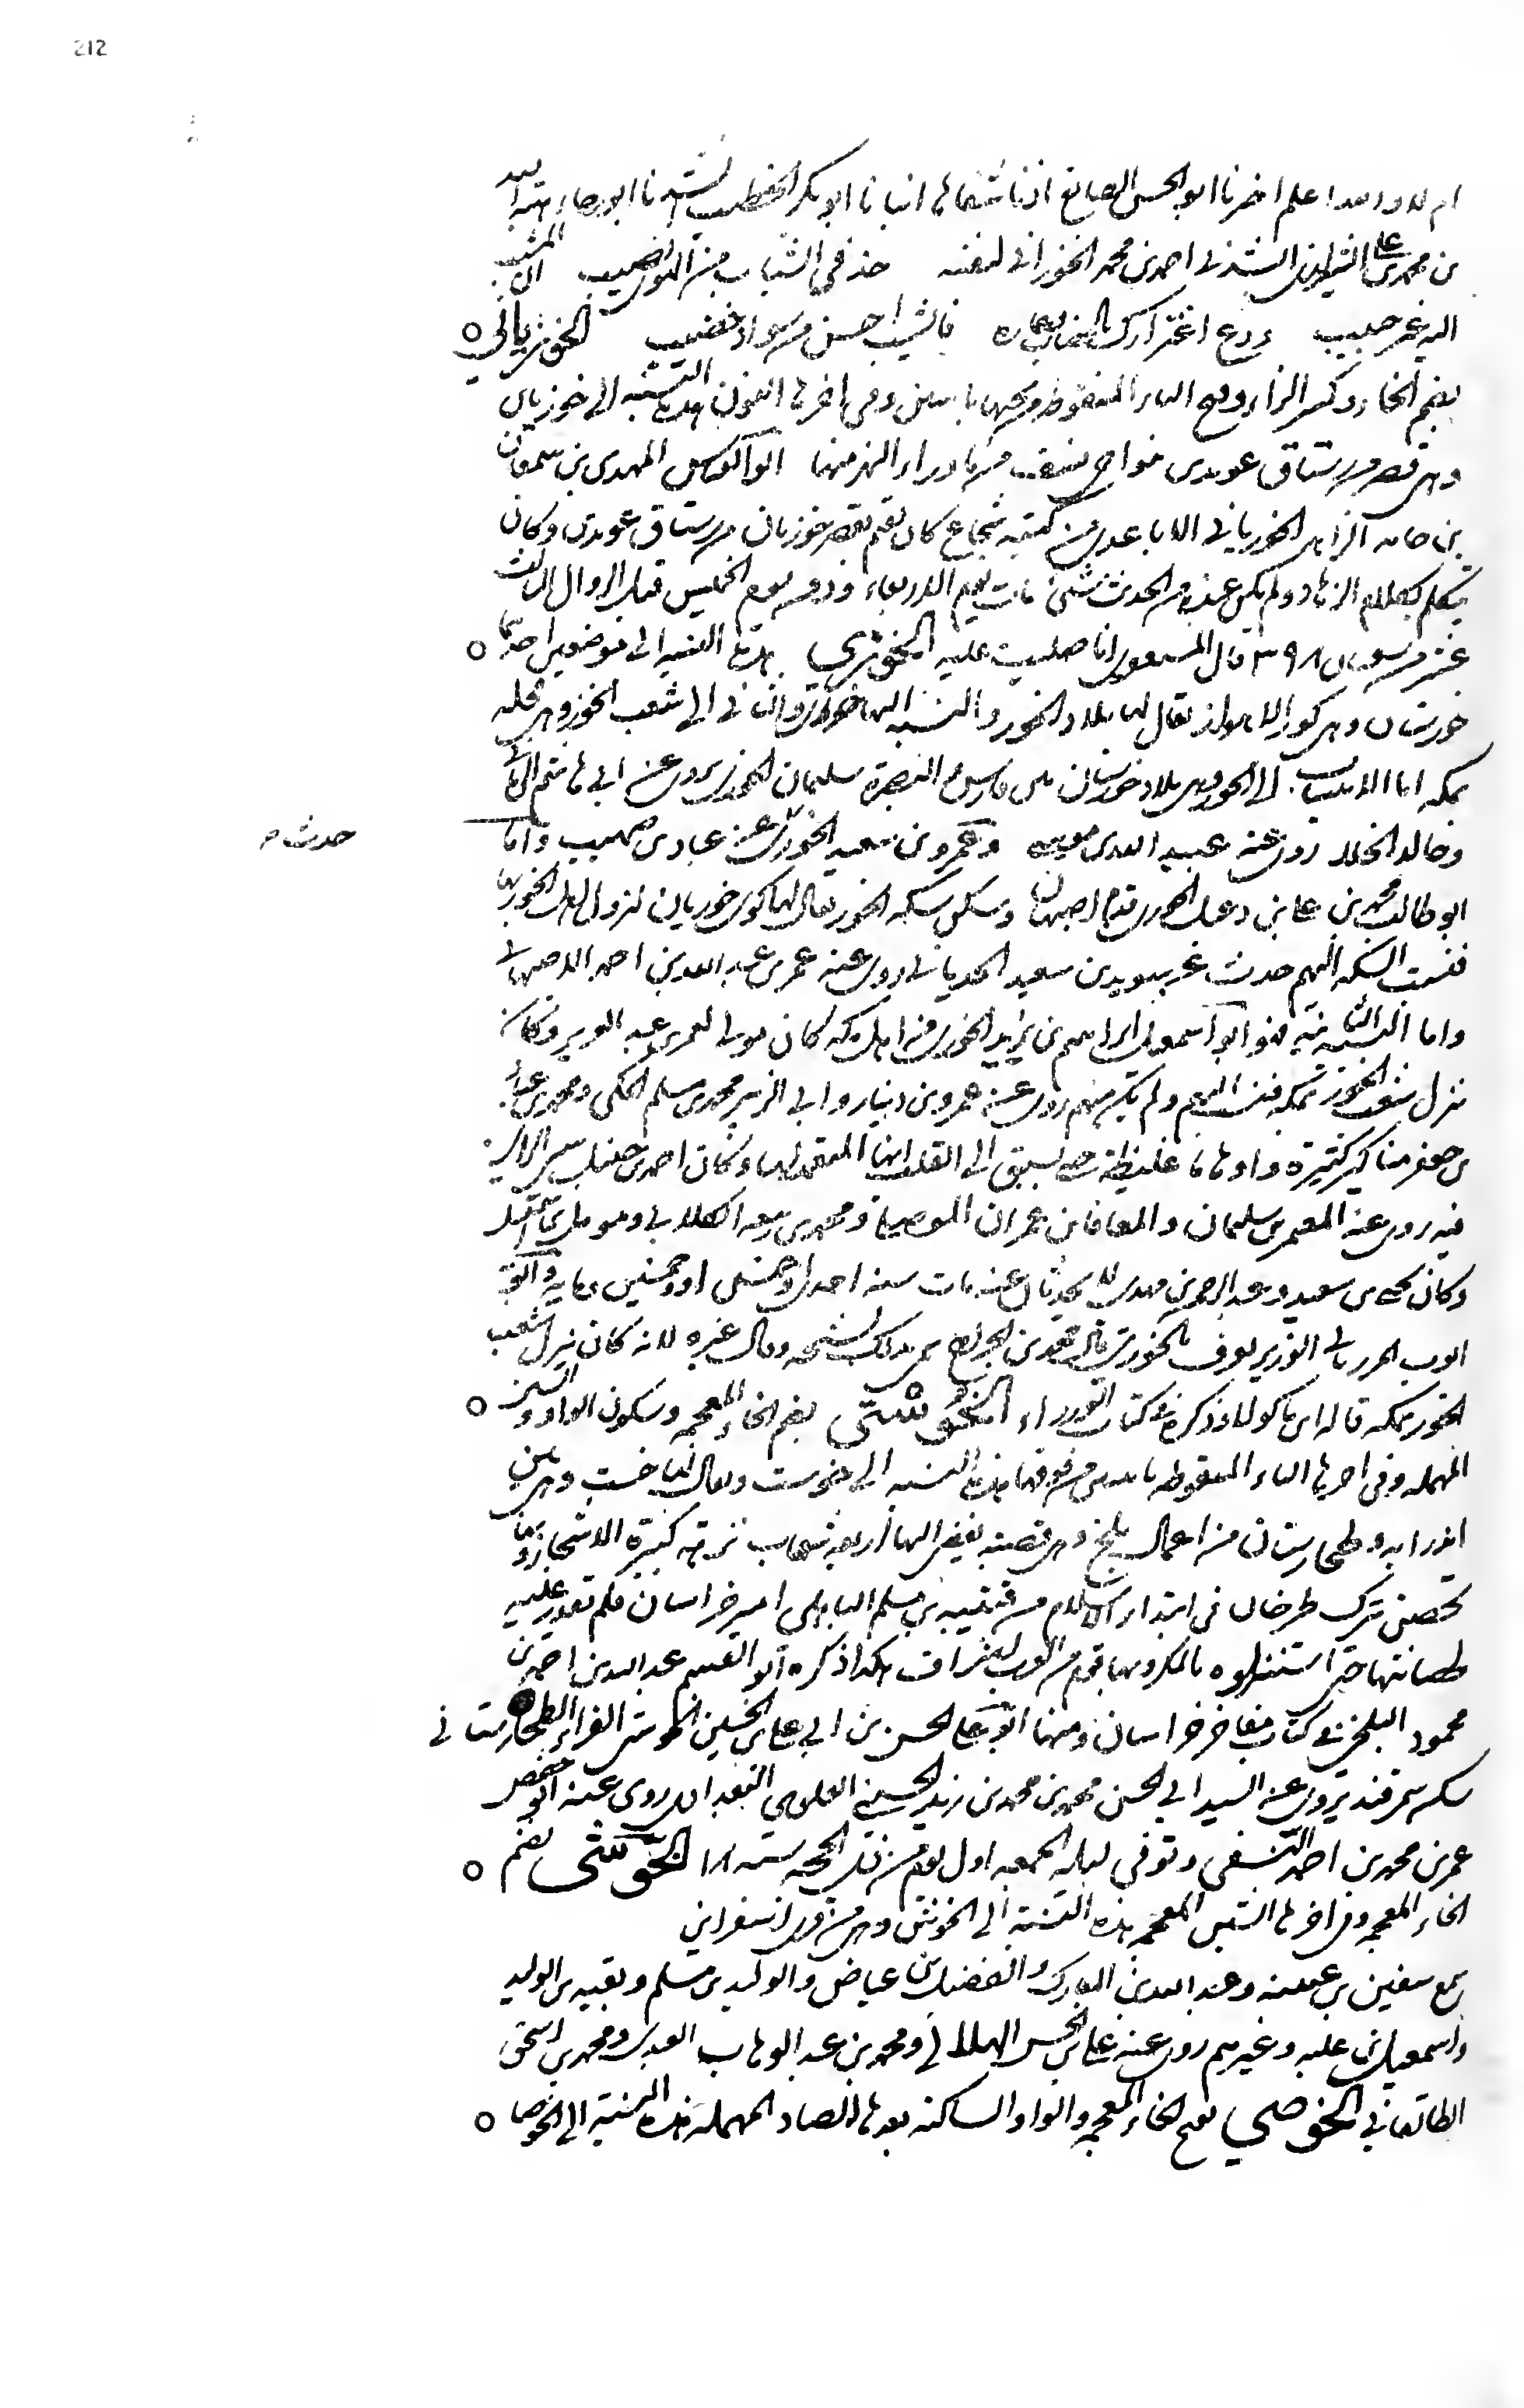 212
ام لا والله اعلم اخبرنا ابو الحسن الصائغ اذنا شفاها انبانا ابو بكر الخطيب انشدنا ابو رجاء هبة الله
بن محمد بن علي الشيرازي انشدني احمد بن محمد الخوزاني لنفسه خذ في الشباب من الهوى بنصيب ان المشيب
اليه غير حبيب ودع اغترارك بالخضاب فالشيب احسن من سواد خضيب الخوزياني
بضم الخاء وكسر الزاء وفتح الياء المنقوطة من تحتها باثنين وفي اخرها النون هذه النسبة الى خوزيان
وهي قصر من رستاق غوبدين نواحي نسف من ما وراء النهر منها ابو المهدي بن سمعان
بن حامد الزاهد الخوزياني كان يقيم بقصر خوزيان من رستاق غوبدين وكان
يتكلم بكلام الزهاد ولم يكن عنده من الحديث شيء مات يوم الاربعاء ودفن يوم الخميس قبل الزوال الثالث
عشر من شعبان قال المستغفري انا صليت عليه الخوزي هذه النسبة الى موضعين احدهما
خوزستان وهي كور الاهواز يقال لها بلاد الخوز والنسبة اليها خوزي والثاني الى شعب الخوز وهي محلة
بمكة اما الاول الى الخوز وهي بلاد خوزستان بين فارس والبصرة سليمان الخوزي يروي عن ابي هاشم الرماني
وخالد الحذاء روى عنه عبيد الله بن موسى وعمرو بن سعيد الخوزي عن عباد بن صهيب واما
حدث م
ابو طالب محمد بن علي بن دعبل الخوزي قدم اصبهان وسكن سكة الخوز يقال لها كوي خوزيان لنزول اهل الخوز بها
فنسبت السكة اليهم حدث عن سعيد روى عنه عمر بن عبد الله بن احمد الاصبهاني
واما النسبة الثانية فهو ابو اسمعيل ابراهيم بن يزيد الخوزي من اهل مكة كان مولى لعمر بن عبد العزيز وكان
ينزل شعب الخوز بمكة فنسب اليهم ولم يكن منهم روى عن عمرو بن دينار وابي الزبير محمد بن مسلم المكي ومحمد بن عباد
بن جعفر مناكير كثيرة واوهاما غليظة حتى يسبق الى القلب انه المتعمد لها وكان احمد بن حنبل سيئ الراي
فيه روى عنه المعتمر بن سليمان والمعافا بن عمران الموصلي ومحمد بن ربيعة الكلابي ومومل بن اسمعيل
وكان يحيى بن سعيد وعبد الرحمن بن مهدي لا يحدثان عنه مات سنة احدى وخمسين او وخمسين وماية وابو
ايوب المورياني الوزير يعرف بالخوزي قال محمد بن الجراح سمي بذلك لشحه وقال غيره لانه كان ينزل شعب
الخوز بمكة قاله ابن ماكولا وذكره في كتاب الوزراء الخوستي بضم الخاء المعجمة وسكون الواو والسين
المهملة وفي اخرها التاء المنقوطة باثنين من فوقها هذه النسبة الى خوست ويقال لها خست وهي بين
اندرابة وطخارستان من اعمال بلخ وهي قصبة يفضي اليها اربعة شعاب نزهة كثيرة الاشجار وبها
تحصن نيزك طرخان في ابتداء الاسلام من قتيبة بن مسلم الباهلي امير خراسان فلم يقدر عليه
لحصانتها حتى استنزلوه بالمكر وبها قوم من العرب الاشراف هكذا ذكره ابو القسم عبد الله بن احمد بن
محمود البلخي في كتاب مفاخر خراسان ومنها ابو علي الحسن بن ابي علي بن الحسين الخوستي الفراء الطخارستاني
سكن سمرقند يروي عن السيد ابي الحسن محمد بن محمد بن زيد الحسيني العلوي البغدادي روى عنه ابو حفص
عمر بن محمد بن احمد النسفي وتوفي ليلة الجمعة اول يوم من ذي الحجة سنة الخوشي بضم
الخاء المعجمة وفي اخرها الشين المعجمة هذه النسبة الى الخوش وهي من قرى اسفراين
سمع سفين بن عيينة وعبد الله بن المبارك والفضيل بن عياض والوليد بن مسلم وبقية بن الوليد
واسمعيل بن علية وغيرهم روى عنه علي بن الحسن الهلالي ومحمد بن عبد الوهاب العبدي ومحمد بن اسحق
الطالقاني الخوصي بفتح الخاء المعجمة والواو الساكنة بعدها الصاد المهملة هذه النسبة الى الخوصا